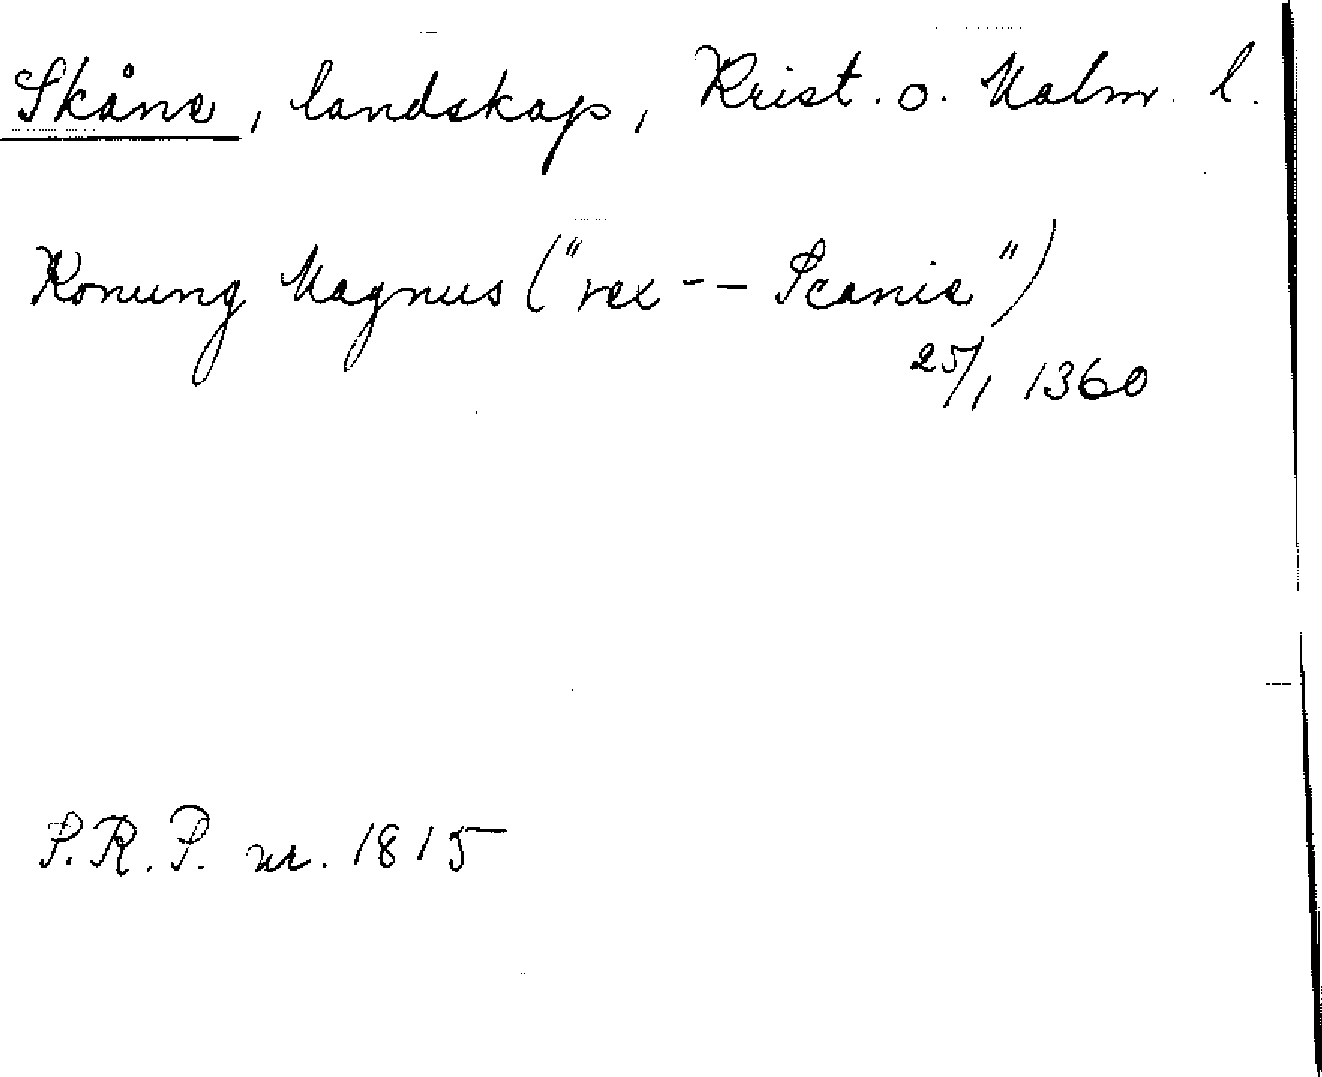 Skåne, landskap, Krist. o. Malm. l.
Konung Magnus ("rex -- Scanie")
25/1 1360
P.R.P. nr. 1815